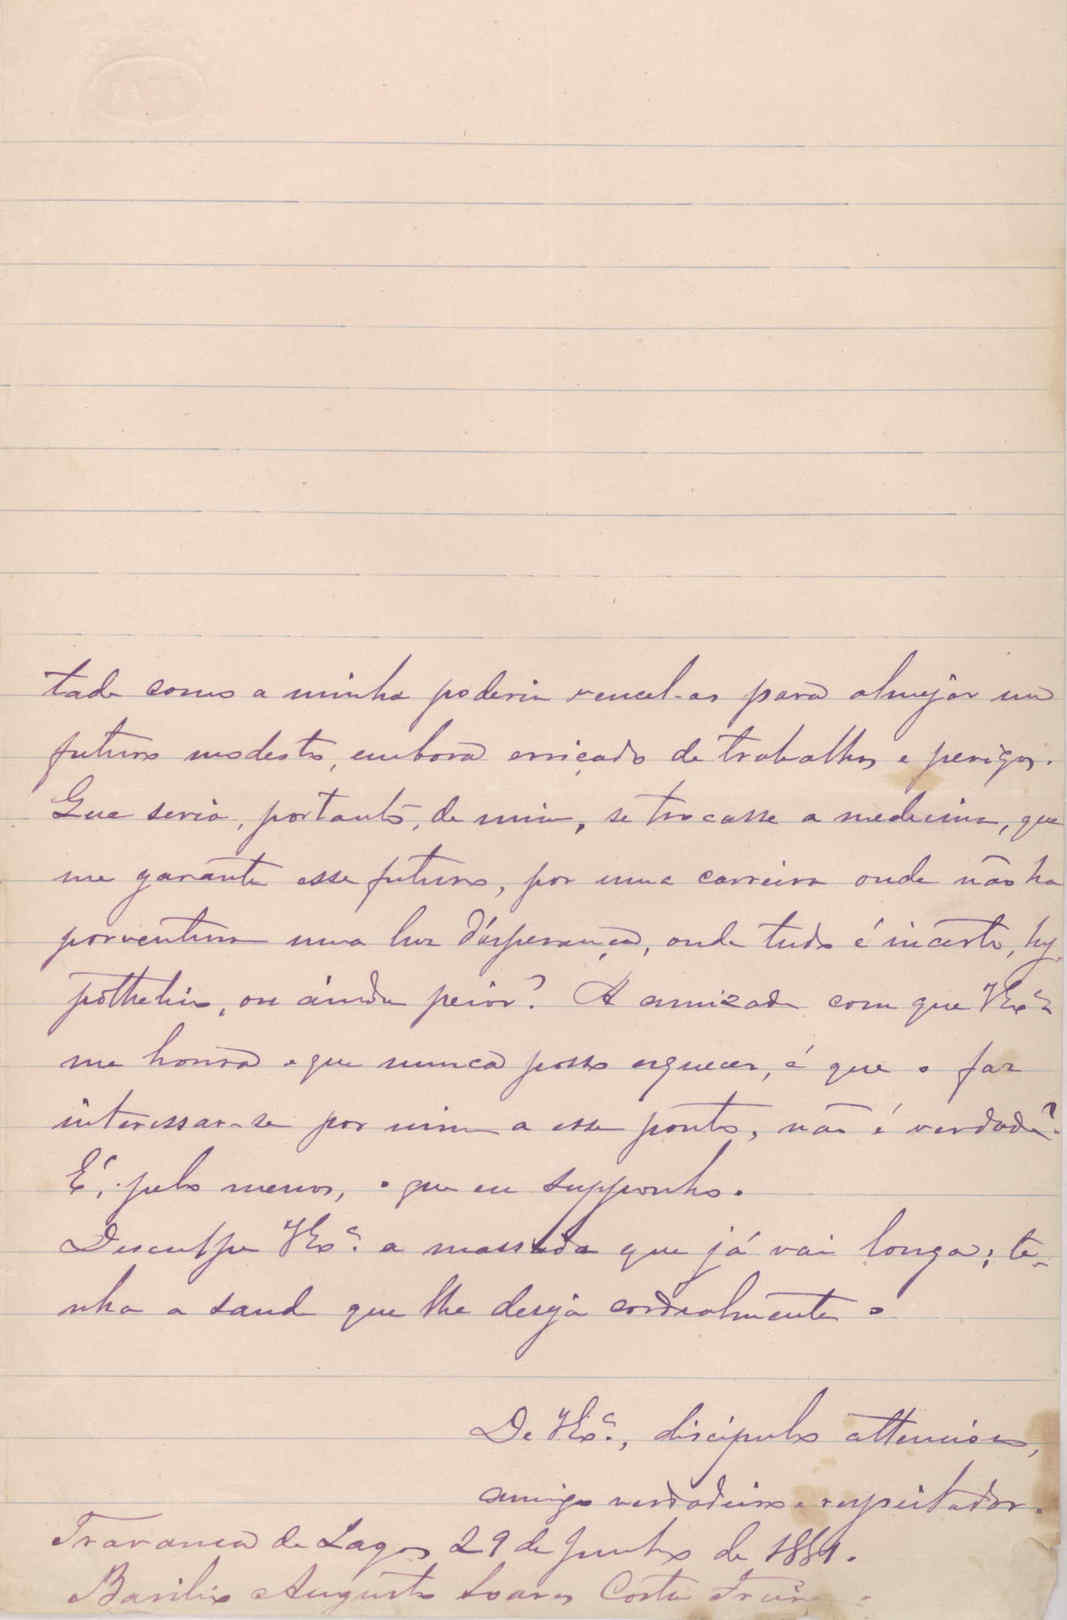 tade como a minha poderia vencel-as para almejar um
futuro modesto, embora erriçado de trabalhos e perigos.
Que seria, portanto, de mim, se trocasse a medicina, que
me garante esse futuro, por uma carreira onde não ha
porventura uma luz d'esperança, onde tudo é incerto, hy-
pothetico, ou ainda peior? A amizade com que VExª
me honra e que nunca posso esquecer, é que o faz
interessar-se por mim a esse ponto, não é verdade?
É, pelo menos, o que eu supponho.
Desculpe VExª. a massada que já vai longa; te-
nha a saud que lhe deseja cordealmente o
De VExª., discipulo attencioso,
amigo verdadeiro e respeitador.
Travanca de Lagos 29 de Junho de 1889.
Basilio Augusto Soares Costa